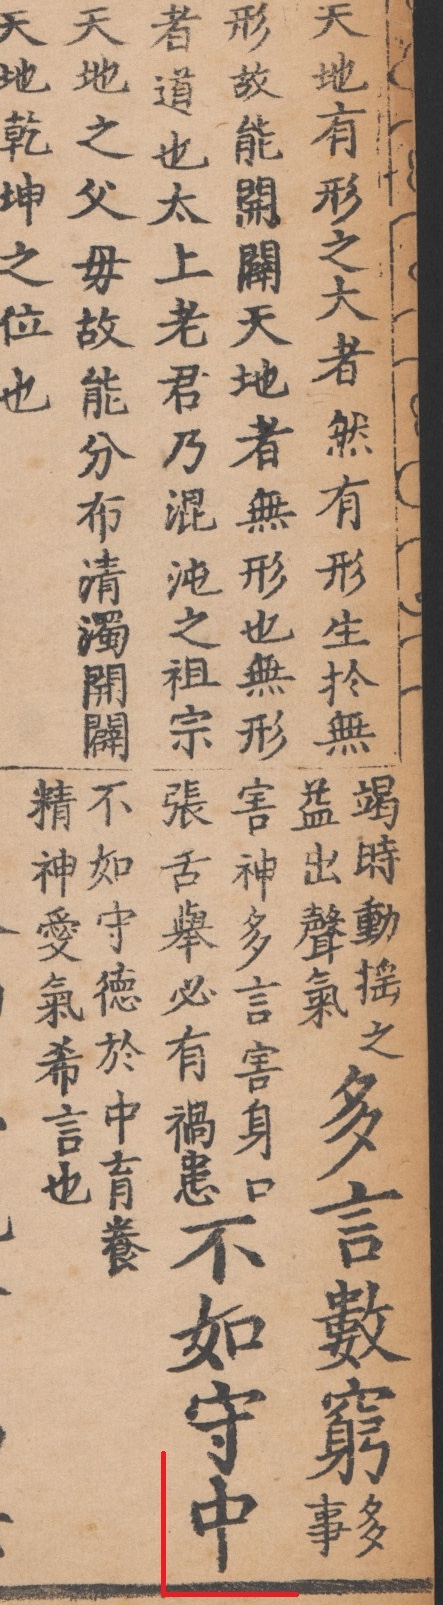 天地有形之大者然有形生扵無
形故能開闢天地者無形也無形
者道也太上老君乃混沌之祖宗
天地之父毋故能分布清濁開闢
天地乾坤之位也
竭時動揺之
益出聲氣
多言數窮
多
事
害神多言害身口
張舌舉必有禍患
不如守中
不如守德於中育養
精神愛氣希言也